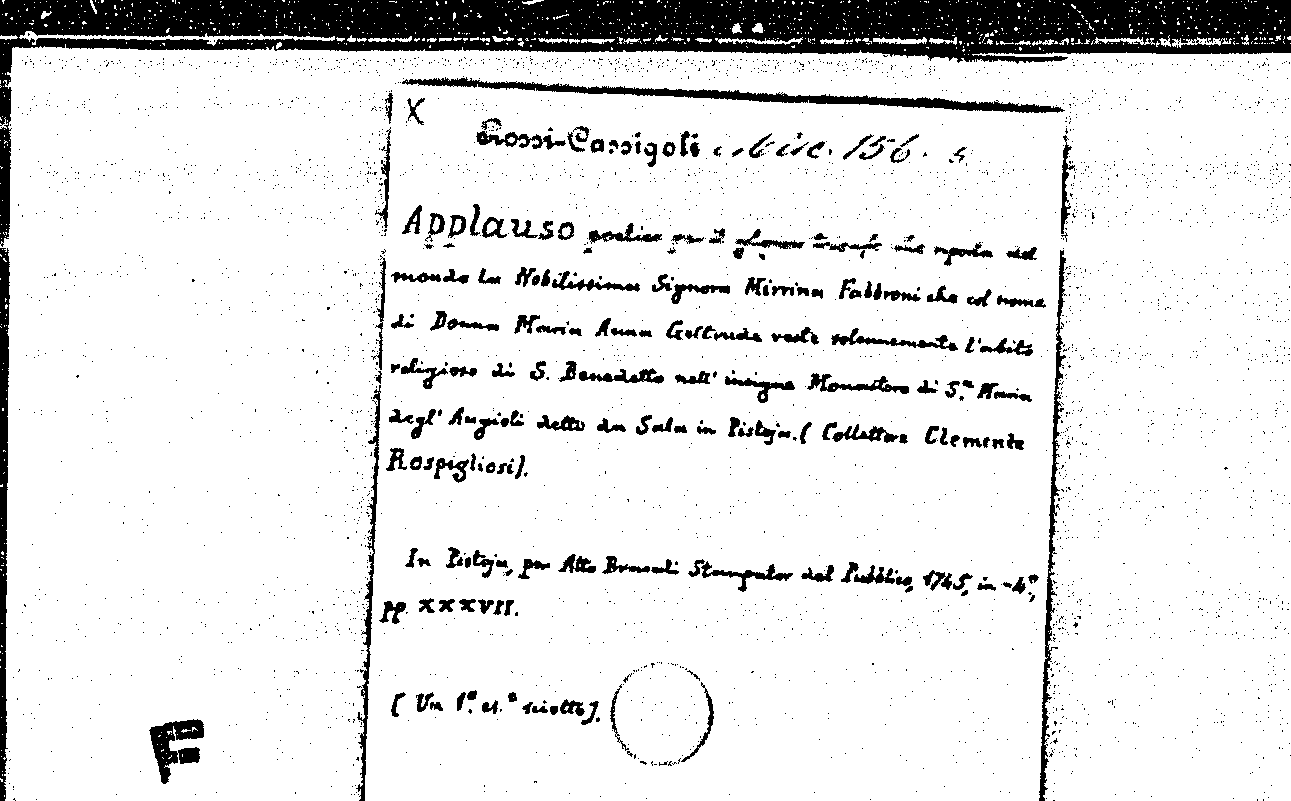 X
Rossi-Cassigoli Misc. 156. 5.
Applauso poetico per il glorioso trionfo che riporta del
mondo la Nobilissima Signora Mirrina Fabbroni che col nome
di Donna Maria Anna Geltrude veste solennemente l'abito
religioso di S. Benedetto nell' insigne Monastero di S.ta Maria
degl' Angioli detto da Sala in Pistoja. [ Collettore Clemente
Rospigliosi].
In Pistoja, per Atto Bracali Stampator del Pubblico, 1745, in -4º,
pp. XXXVII.
[ Un 1º es.e sciolto].
F